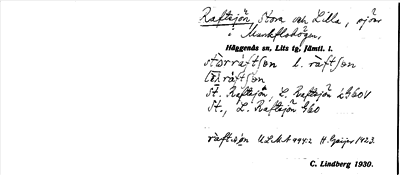 Raftsjön, Stora och Lilla, sjöar
i Munkflohögen,
Häggenås sn, Lits tg, Jämtl. l.
stòrràftʃøn l. ràftʃøn
ràftʃøn
St. Raftsjön, L. Raftsjön
St., L. Raftsjön
ràftsjön U.L.M.A H. Geijer 1923.
C. Lindberg 1930.